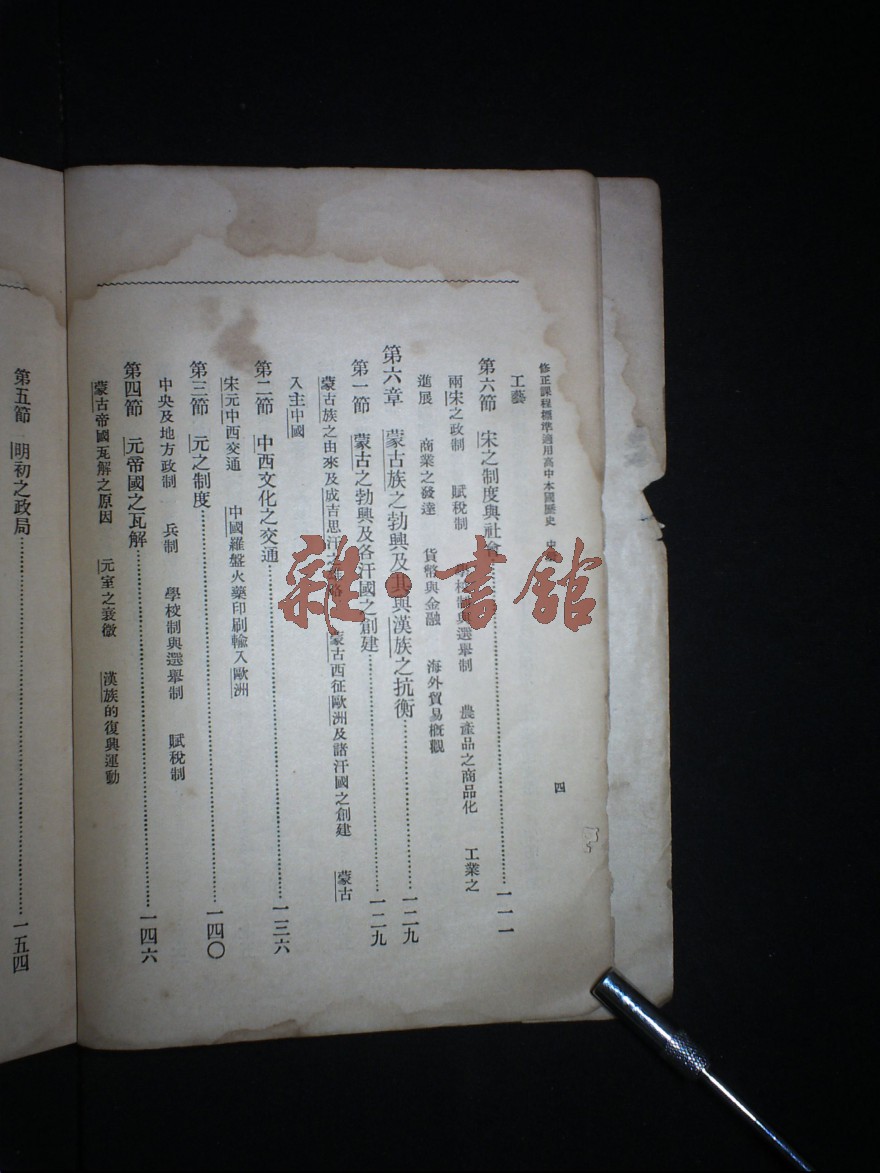 修正課程標準適用高中本國歷史　史
四
工藝
第六節　宋之制度與社會…………一一一
兩宋之政制　賦稅制　學校制與選舉制　農產品之商品化　工業之
進展　商業之發達　貨幣與金融　海外貿易概觀
第六章　蒙古族之勃興及其與漢族之抗衡…………一二九
第一節　蒙古之勃興及各汗國之創建…………一二九
蒙古族之由來及成吉思汗之　蒙古西征歐洲及諸汗國之創建　蒙古
入主中國
第二節　中西文化之交通…………一三六
宋元中西交通　中國羅盤火藥印刷輸入歐洲
第三節　元之制度…………一四〇
中央及地方政制　兵制　學校制與選舉制　賦稅制
第四節　元帝國之瓦解…………一四六
蒙古帝國瓦解之原因　元室之衰微　漢族的復興運動
第五節　明初之政局…………一五四
雜·書館